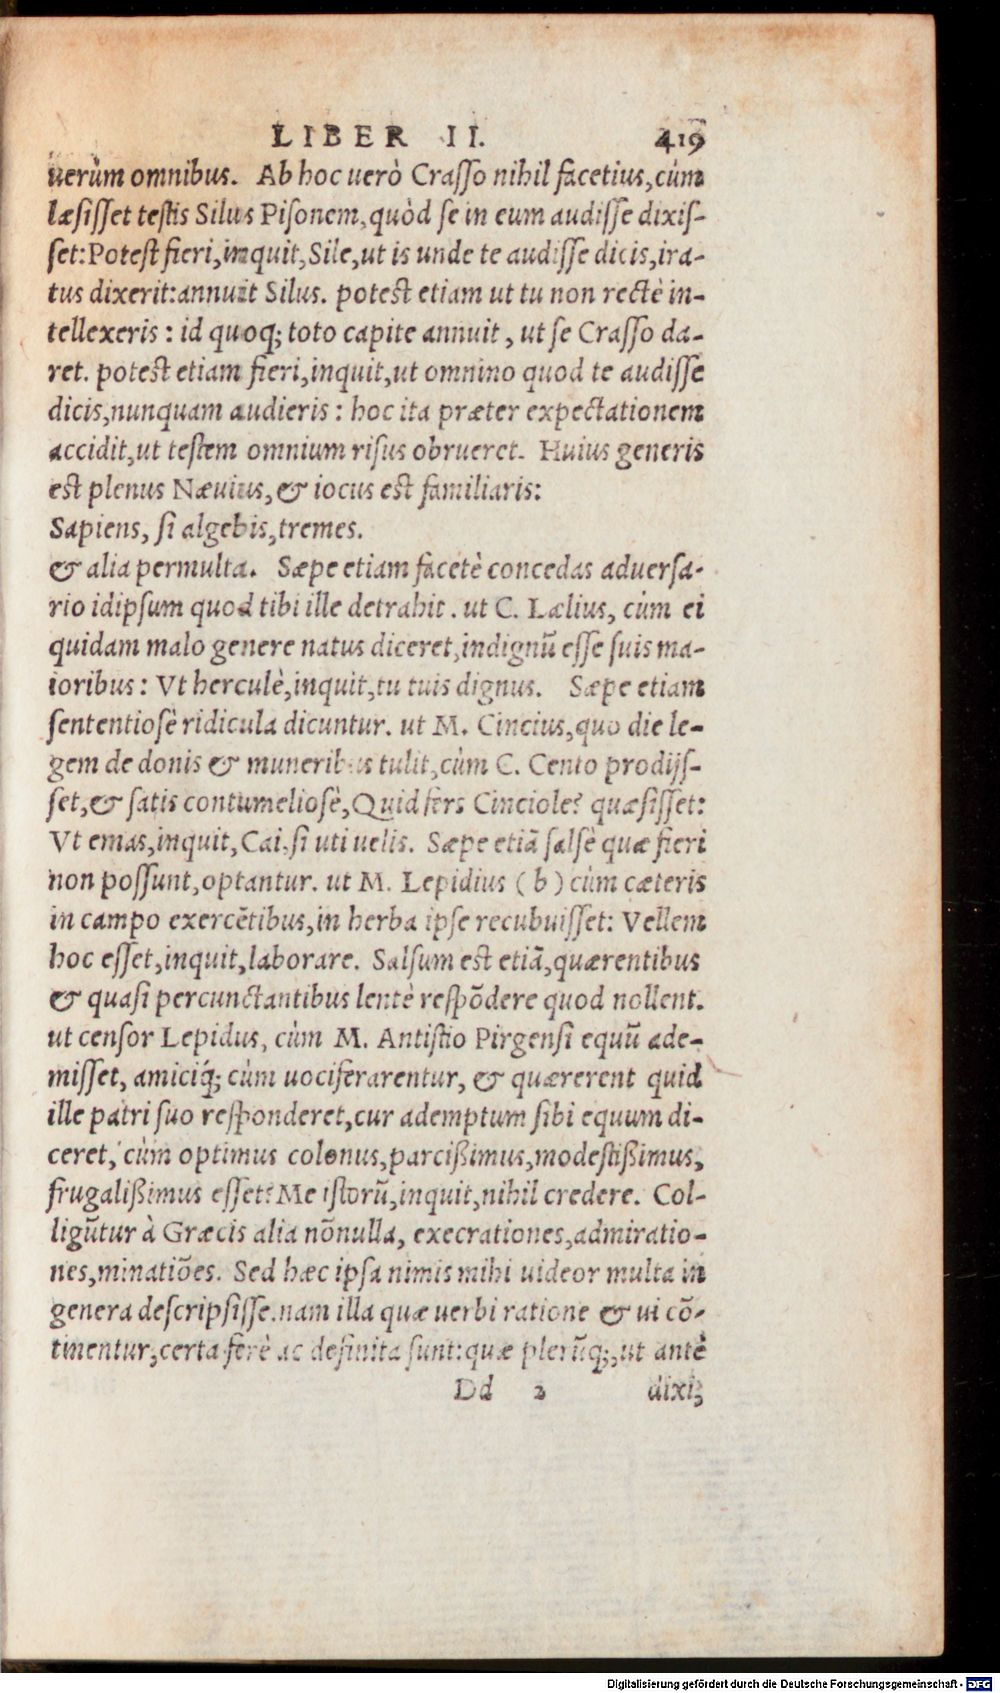 LIBER II. 419
uerùm omnibus. Ab hoc uerò Crasso nihil facetius, cùm
læsisset testis Silus Pisonem, quòd se in eum audisse dixis-
set: Potest fieri, inquit, Sile, ut is unde te audisse dicis, ira-
tus dixerit: annuit Silus. potest etiam ut tu non rectè in-
tellexeris: id quoq; toto capite annuit, ut se Crasso da-
ret. potest etiam fieri, inquit, ut omnino quod te audisse
dicis, nunquam audieris: hoc ita præter expectationem
accidit, ut testem omnium risus obrueret. Huius generis
est plenus Næuius, & iocus est familiaris:
Sapiens, si algebis, tremes.
& alia permulta. Sæpe etiam facetè concedas aduersa-
rio idipsum quod tibi ille detrahit. ut C. Lælius, cùm ei
quidam malo genere natus diceret, indignũ esse suis ma-
ioribus: Vt herculè, inquit, tu tuis dignus. Sæpe etiam
sententiosè ridicula dicuntur. ut M. Cincius, quo die le-
gem de donis & muneribus tulit, cùm C. Cento prodijs-
set, & satis contumeliosè, Quid fers Cinciole? quæsisset:
Vt emas, inquit, Cai, si uti uelis. Sæpe etiã salsè quæ fieri
non possunt, optantur. ut M. Lepidius (b) cùm cæteris
in campo exercẽtibus, in herba ipse recubuisset: Vellem
hoc esset, inquit, laborare. Salsum est etiã, quærentibus
& quasi percunctantibus lentè respõdere quod nollent.
ut censor Lepidus, cùm M. Antistio Pirgensi equũ ade-
misset, amiciq́; cùm uociferarentur, & quærerent quid
ille patri suo responderet, cur ademptum sibi equum di-
ceret, cùm optimus colonus, parcißimus, modestißimus,
frugalißimus esset? Me istorũ, inquit, nihil credere. Col-
ligũtur à Græcis alia nõnulla, execrationes, admiratio-
nes, minatiões. Sed hæc ipsa nimis mihi uideor multa in
genera descripsisse. nam illa quæ uerbi ratione & ui cõ-
tinentur, certa ferè ac definita sunt: quæ plerũq;, ut antè
Dd 2 dixi,
Digitalisierung gefördert durch die Deutsche Forschungsgemeinschaft - DFG